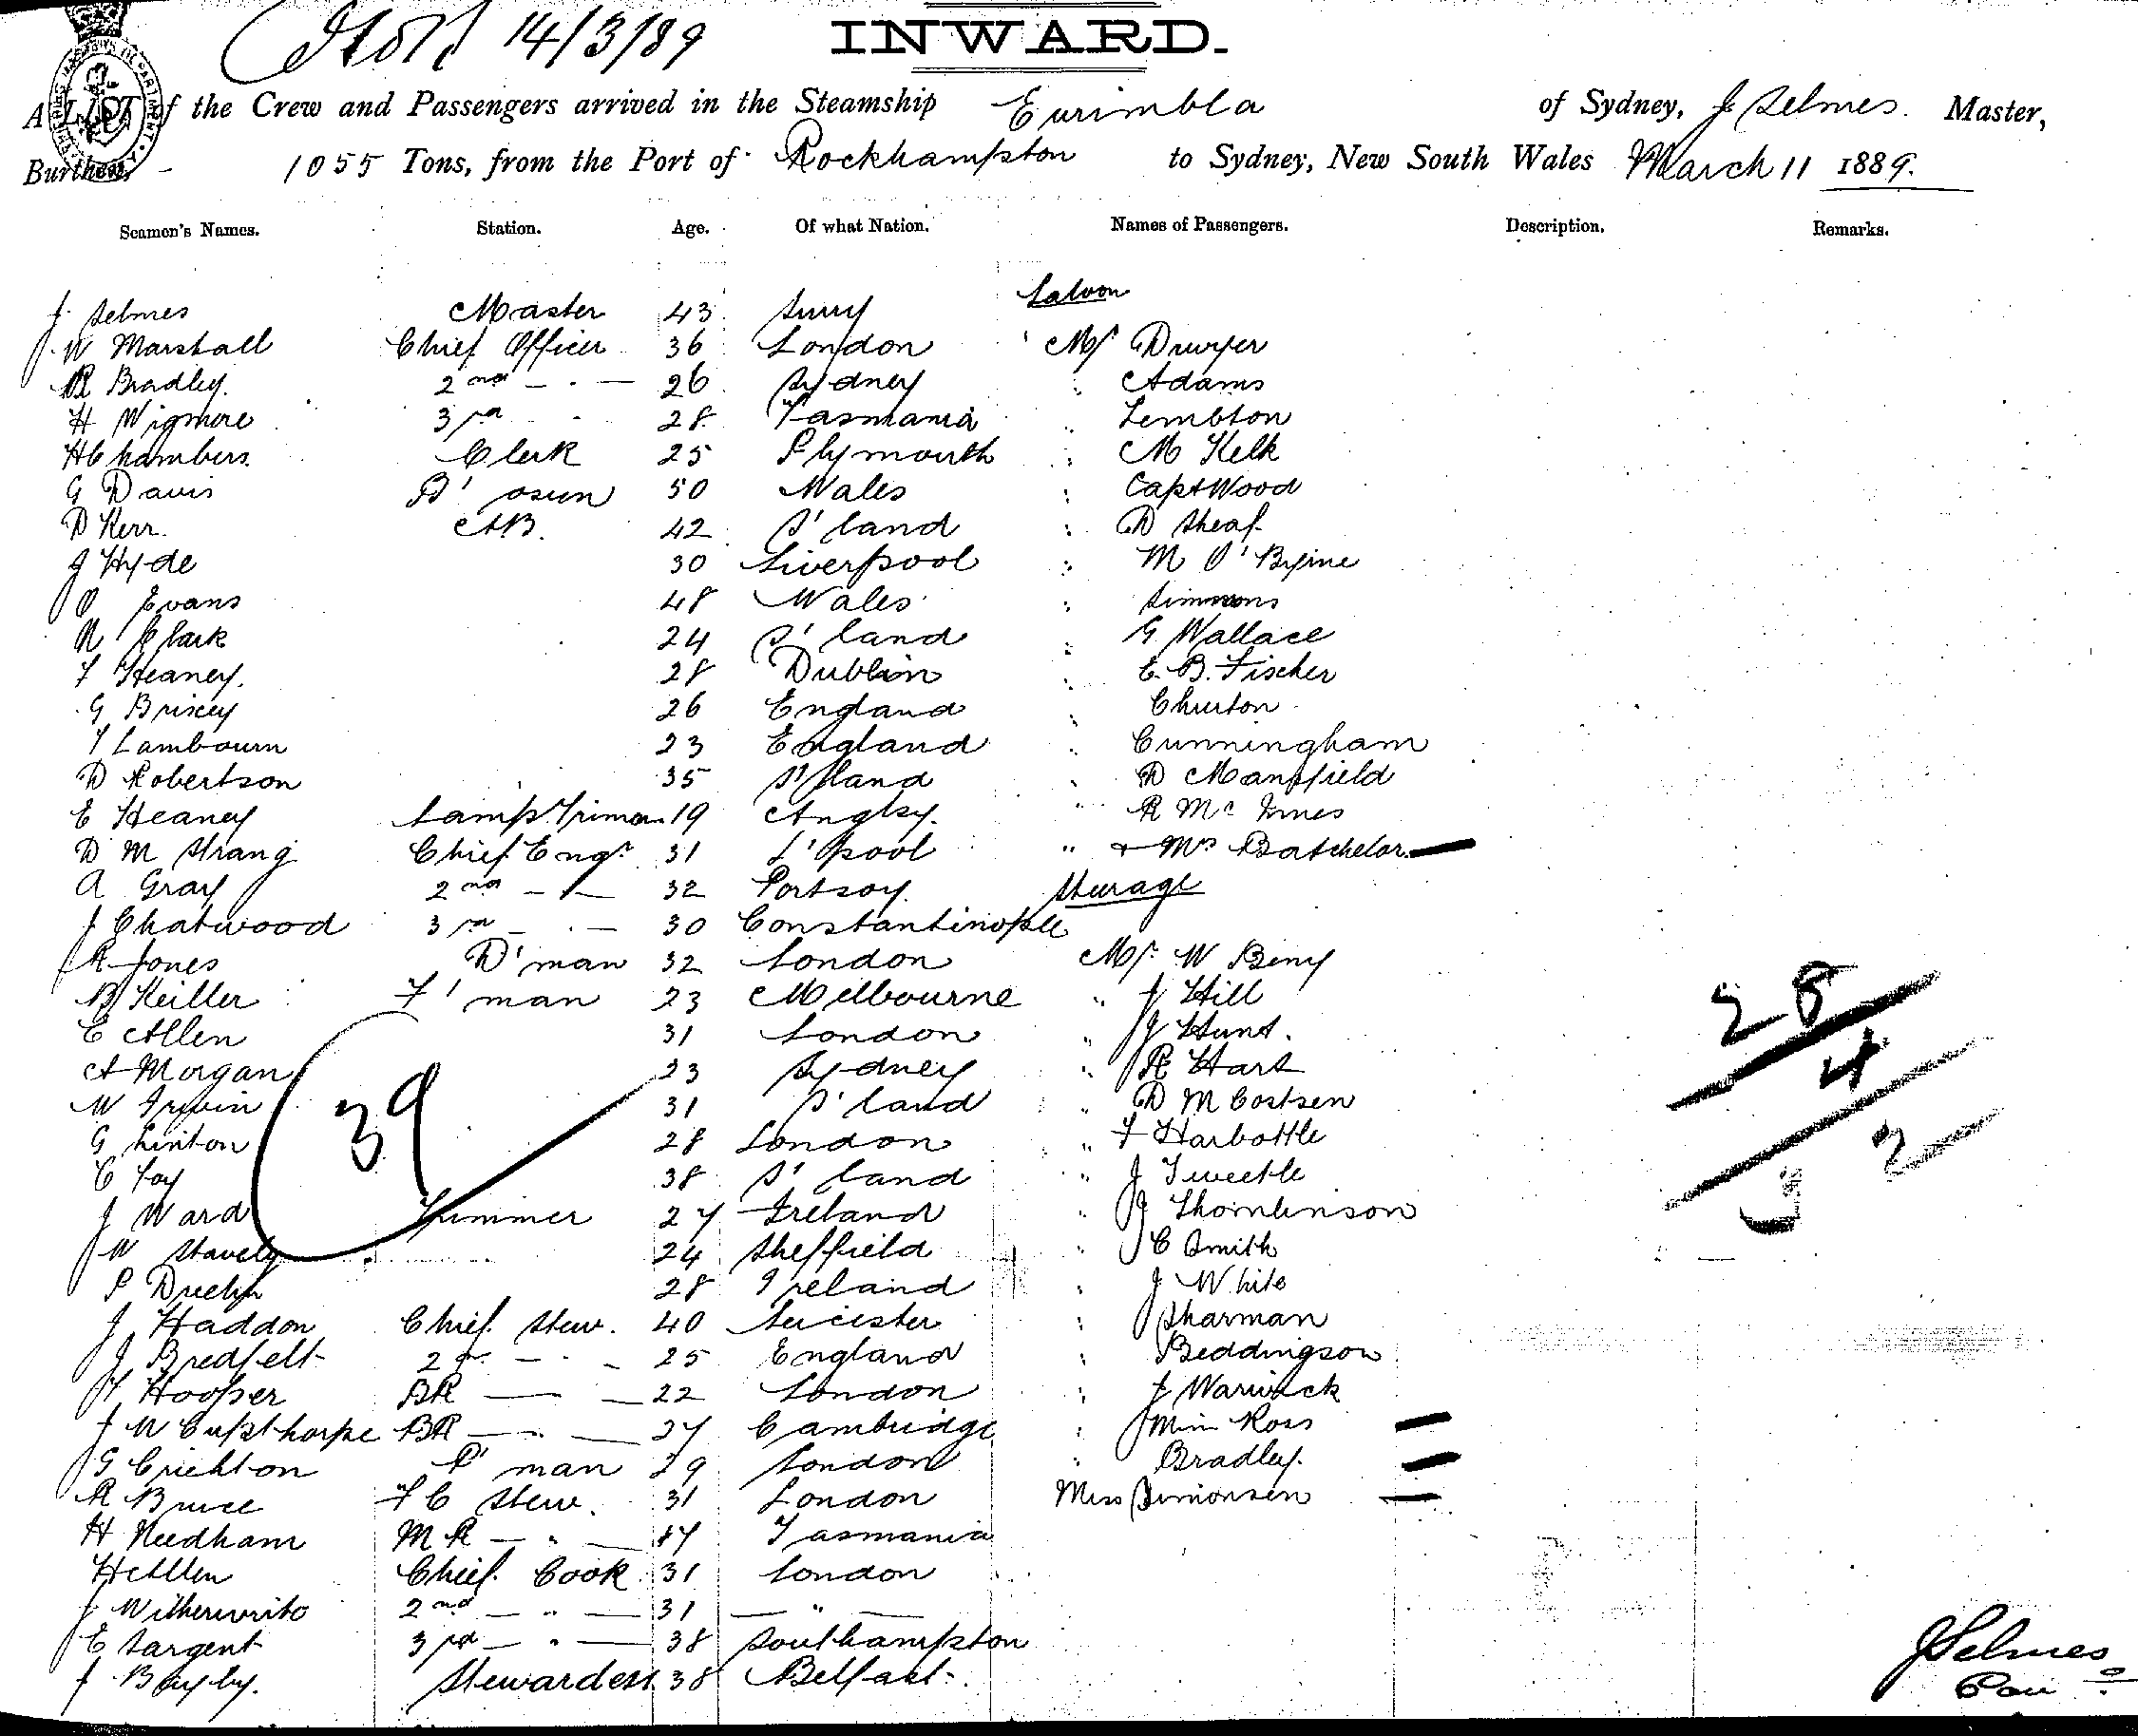 14/3/89
INWARD.
A LIST of the Crew and Passengers arrived in the Steamship Eurimbla of Sydney, J. Selmes. Master,
Burthen, 1055 Tons, from the Port of Rockhampton to Sydney, New South Wales March 11 1889.
Seamen's Names. Station. Age. Of what Nation. Names of Passengers. Description. Remarks.
Saloon
J. Selmes Master 43 Surry
J. W Marshall Chief Officer 36 London Mr Dwyer
R Bradley. 2nd — " — 26 Sydney " Adams
H Wigmore 3rd 28 Tasmania " Lembton
H Chambers. Clerk 25 Plymouth " M Kelk
G Davis B'osun 50 Wales " Capt Wood
D Kerr. AB. 42 S'land " D Sheaf
J Hyde 30 Liverpool " M O'Byrne
O Evans 48 Wales " Simmons
N Clark 24 S'land " G Wallace
F Heaney. 28 Dublin " E. B. Fischer
G Briscey 26 England " Churton
T Lambourn 23 England " Cunningham
D Robertson 35 S'land " D Mansfield
E Heaney Lamp Trimer 19 " R McInnes
D M Strang Chief Engr 31 L'pool " + Mrs Batchelor
A Gray 2nd — " — 32 Portsoy. Steerage
J Chatwood 3rd — " — 30 Constantinople
R Jones D'man 32 London Mr. W Beny
B Keiller F'man 23 Melbourne " J Hill
E Allen 31 London " J Hunt.
A Morgan 23 Sydney " R Hart
W Irwin 31 S'land " D M Costsen
G Linton 28 London " F Harbottle
C Foy 38 S'land " J Tweetle
J Ward Trimmer 27 Ireland " J Thomlinson
W Stavely 24 Sheffield " C Smith
P 28 Ireland " J White
J Haddon Chief Stew. 40 Leicester " Sharman
J Bredfelt 2nd — " — 25 England " Beddingson
T Hooper BR — — 22 London " J Warwick
J W Cupsthorpe BR — " — 27 Cambridge " Ross
G Crichton P'man 29 London " Bradley.
R Bruce F C Stew. 31 London Miss Simonsen
H Needham MR — " — 17 Tasmania
H Allen Chief Cook 31 London
J 2nd — " — 31 — " —
E Sargent 3rd — " — 38 Southampton
J Stewardess 38 Belfast
39
28
4
2
J Selmes